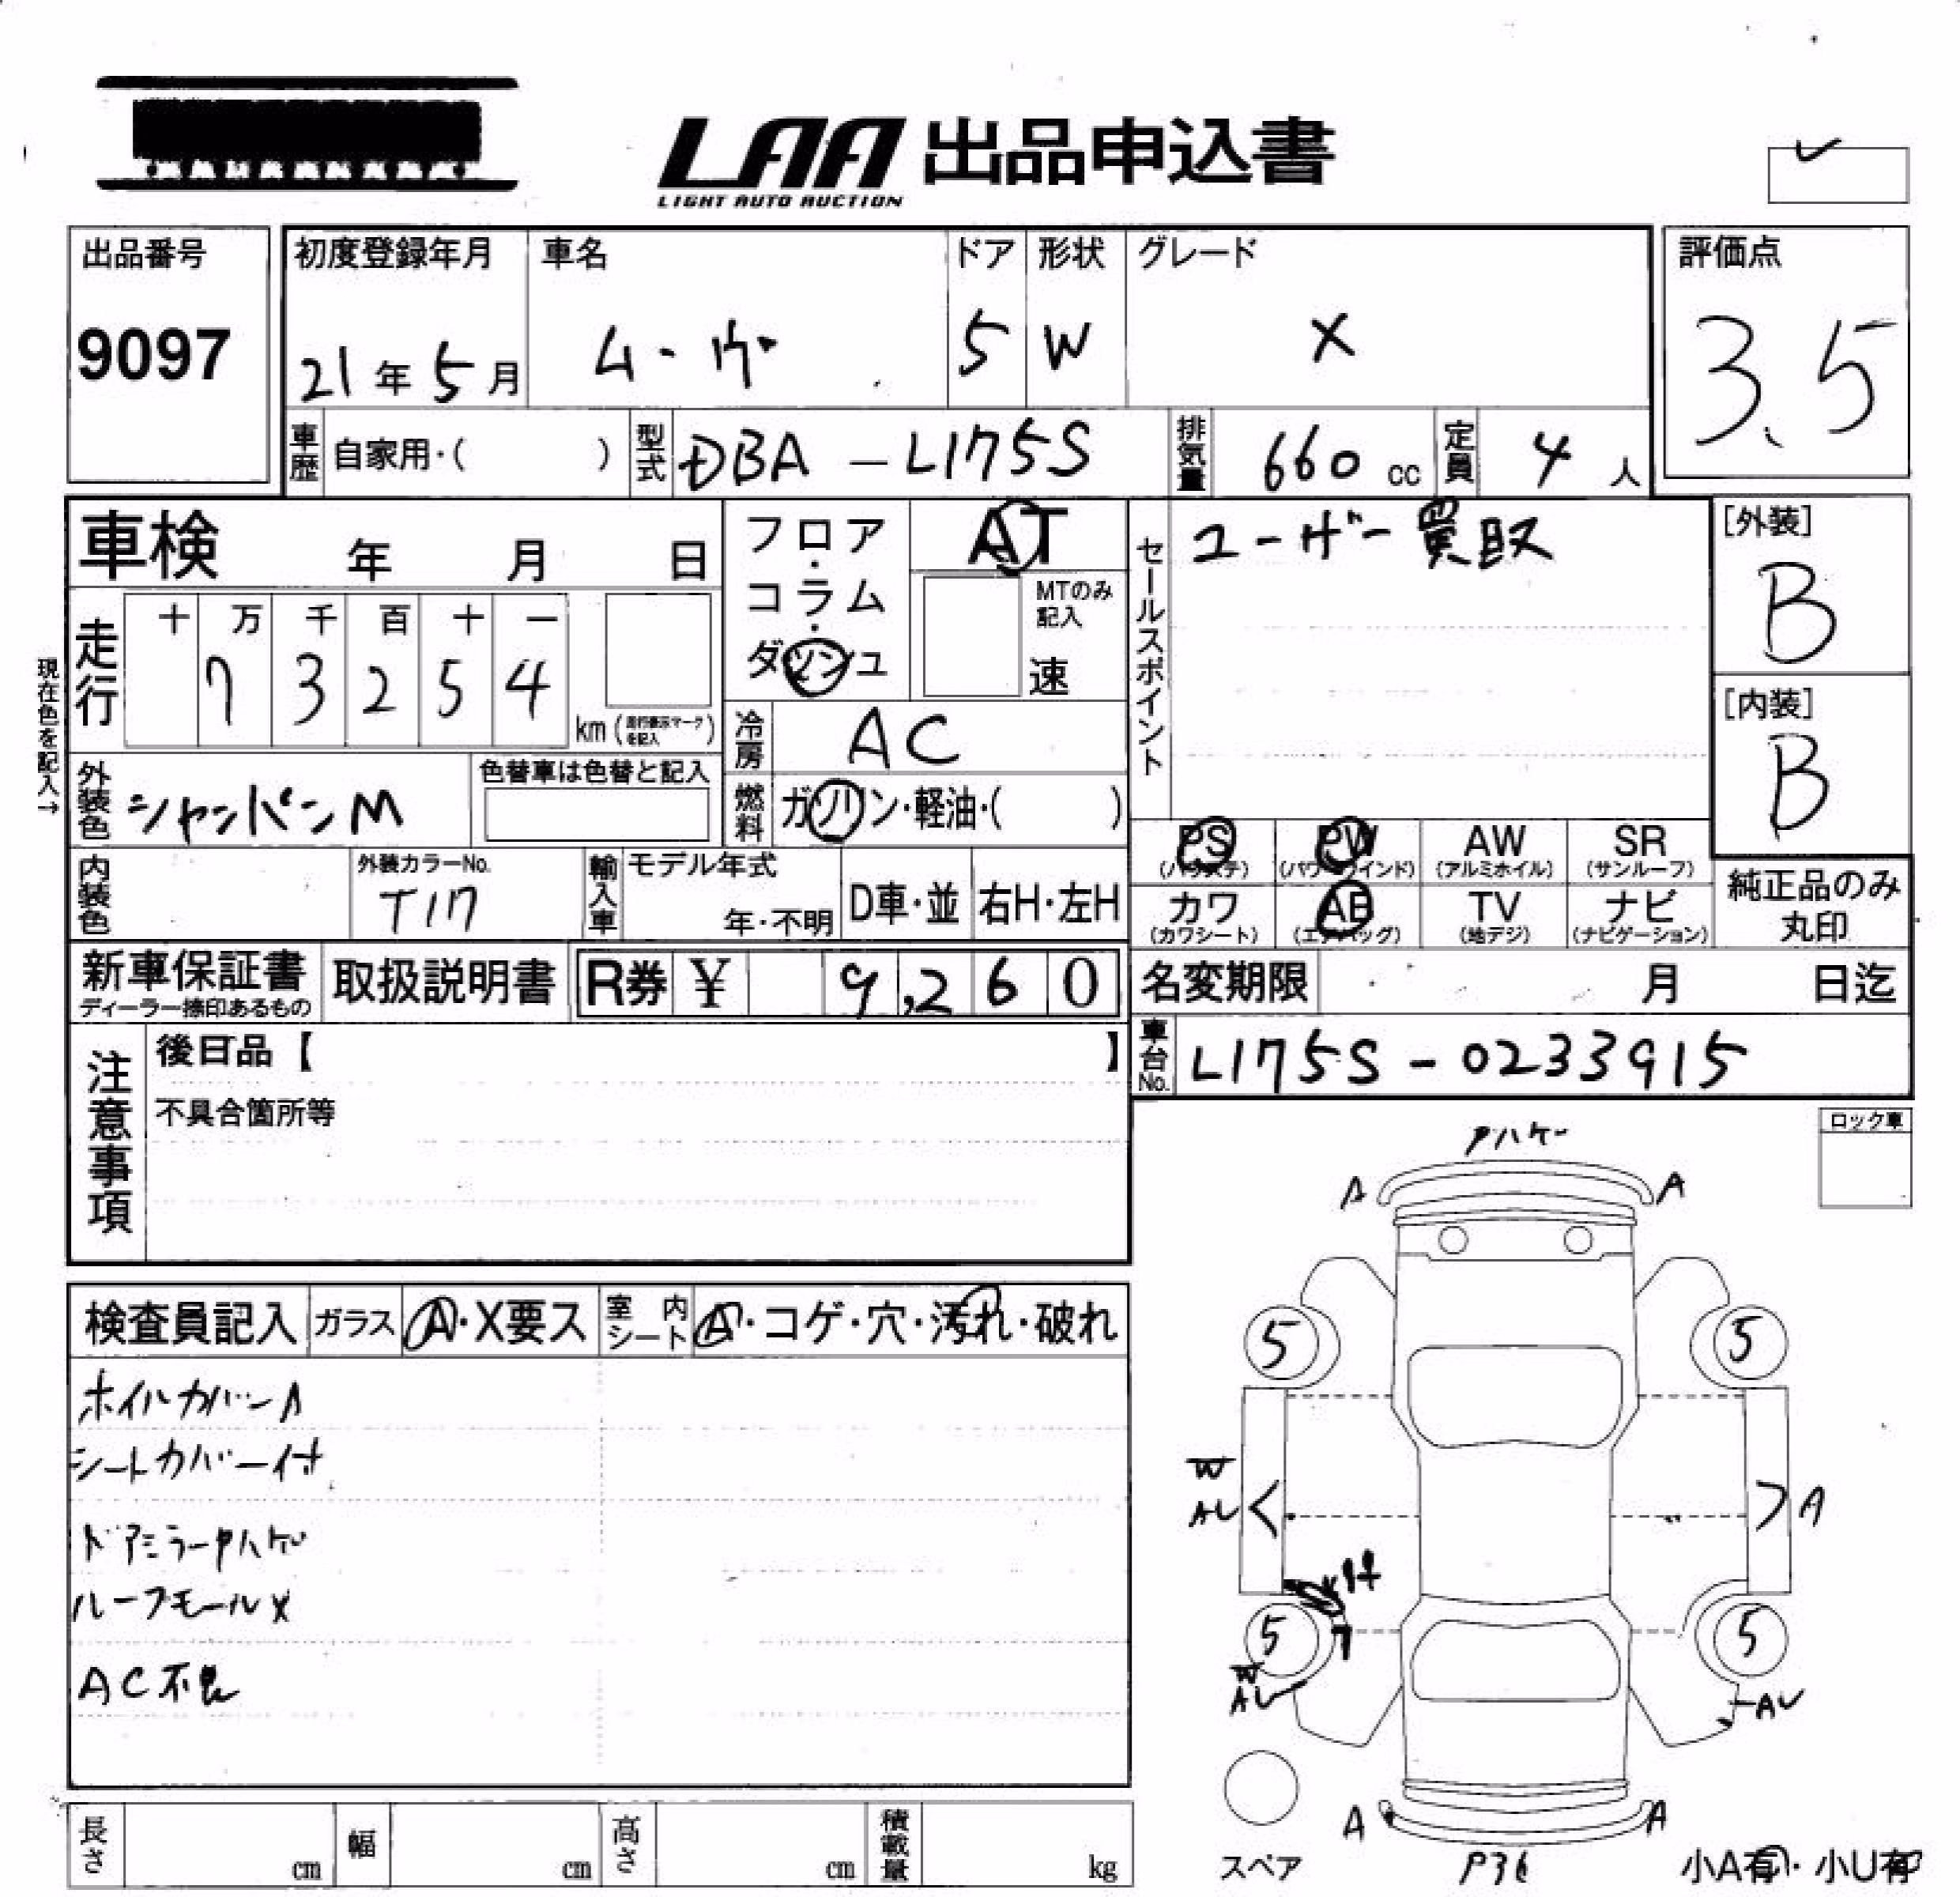 LAA 出品申込書
LIGHT AUTO AUCTION
出品番号
9097
初度登録年月
21年5月
車名
ムーヴ
ドア
5
形状
W
グレード
X
評価点
3.5
車歴 自家用・( )
型式 DBA-L175S
排気量 660 cc
定員 4 人
車検 年 月 日
フロア・コラム・ダッシュ
AT
MTのみ記入
速
セールスポイント
ユーザー買取
[外装]
B
[内装]
B
現在色を記入→
走行
十 万 千 百 十 一
7 3 2 5 4
km (走行表示マークを記入)
冷房 AC
外装色 シャンパンM
色替車は色替と記入
燃料 ガソリン・軽油・( )
内装色
外装カラーNo.
T17
輸入車
モデル年式
年・不明
D車・並
右H・左H
PS
(パワステ)
PW
(パワーウインド)
AW
(アルミホイル)
SR
(サンルーフ)
カワ
(カワシート)
AB
(エアバッグ)
TV
(地デジ)
ナビ
(ナビゲーション)
純正品のみ
丸印
新車保証書
ディーラー捺印あるもの
取扱説明書
R券 ¥ 9,260
名変期限 月 日迄
車台No. L175S-0233915
注意事項
後日品【 】
不具合箇所等
ロック車
検査員記入
ガラス A・X要ス
室内シート A・コゲ・穴・汚れ・破れ
ホイルカバーA
シートカバー付
ドアミラーPハゲ
ルーフモールX
AC不良
Pハゲ
A A
5 5
W
AU
A
5 5
W
AU
AU
A A
P36
スペア
小A有・小U有
長さ cm
幅 cm
高さ cm
積載量 kg